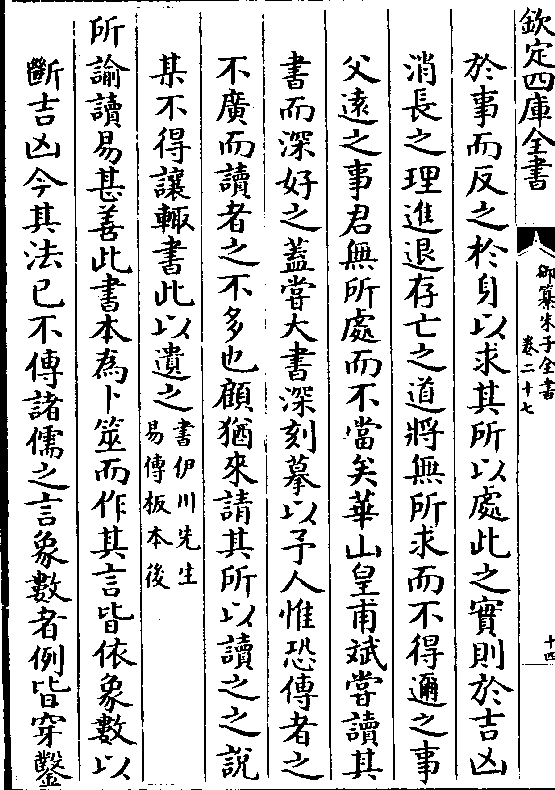 欽定四庫全書
御纂朱子全書
卷二十七
十四
於事而反之於身以求其所以處此之實則於吉凶
消長之理進退存亡之道將無所求而不得邇之事
父遠之事君無所處而不當矣華山皇甫斌嘗讀其
書而深好之蓋嘗大書深刻摹以予人惟恐傳者之
不廣而讀者之不多也顧猶來請其所以讀之之說
某不得讓輙書此以遺之
書伊川先生
易傳板本後
所諭讀易甚善此書本為卜筮而作其言皆依象數以
斷吉凶今其法已不傳諸儒之言象數者例皆穿鑿